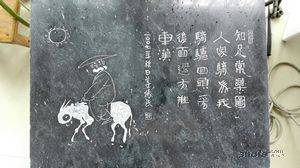 知足常樂圖
人家騎馬我
騎驢回頭看
後面還有推
車漢